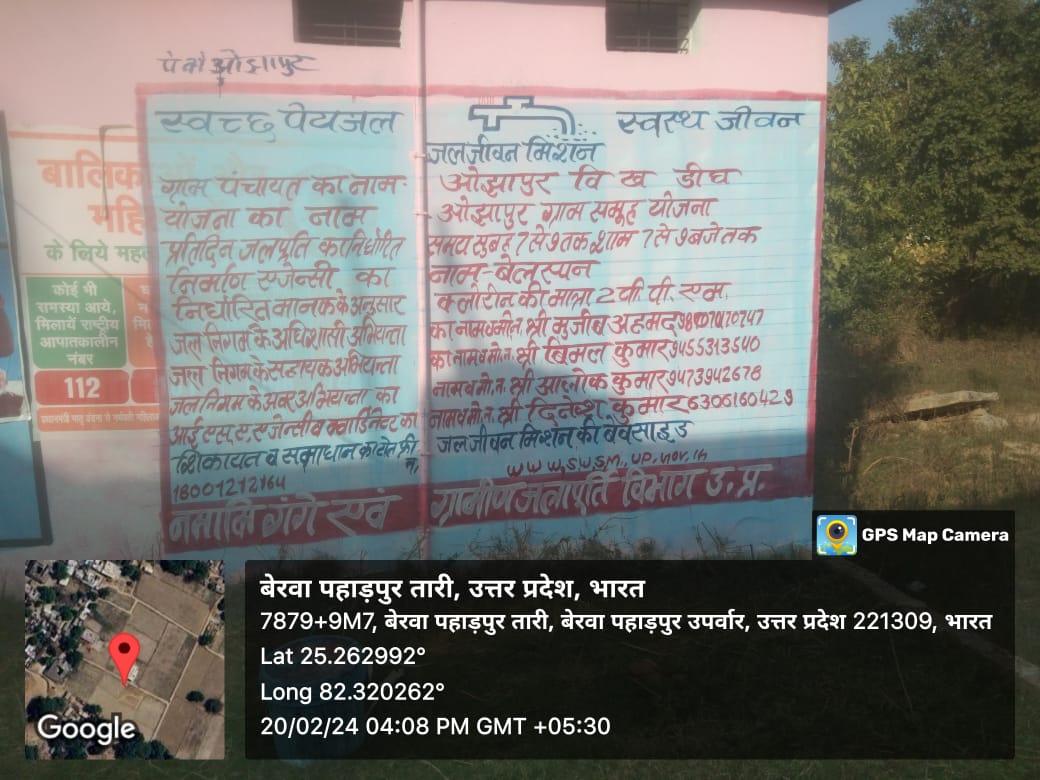 पे यो ओझापुर
स्वच्छ पेयजल स्वस्थ जीवन
जल जीवन मिशन
ग्राम पंचायत का नाम- ओझापुर वि ख डीघ
योजना का नाम - ओझापुर ग्राम समूह योजना
प्रतिदिन जलपूर्ति का निर्धारित समय सुबह 7 से 9 तक शाम 7 से 9 बजे तक
निर्माण एजेन्सी का नाम-बेलस्पन
निर्धारित मानक के अनुसार क्लोरीन की मात्रा 2 पी. पी. एम.
जल निगम के अधिशासी अभियन्ता का नाम व मो.न. श्री मुजीब अहमद
जल निगम के सहायक अभियन्ता का नाम व मो.न. श्री बिमल कुमार 9455313540
जल निगम के अवर अभियन्ता का नाम व मो. न. श्री आलोक कुमार 9473942678
आई एस. ए. एजेन्सी व क्वार्डिनेटर का नाम व मो. न. श्री दिनेश कुमार 6306160429
शिकायत व समाधान का टोल फ्री न. जल जीवन मिशन की बेवसाइड
18001212164 www.swsm.up.gov.in
नमामि गंगे एवं ग्रामीण जलापूर्ति विभाग उ. प्र.
बालिक
महि
के लिये मह
कोई भी
समस्या आये,
मिलायें राष्ट्रीय
आपातकालीन
नंबर
112
GPS Map Camera
बेरवा पहाड़पुर तारी, उत्तर प्रदेश, भारत
7879+9M7, बेरवा पहाड़पुर तारी, बेरवा पहाड़पुर उपर्वार, उत्तर प्रदेश 221309, भारत
Lat 25.262992°
Long 82.320262°
20/02/24 04:08 PM GMT +05:30
Google